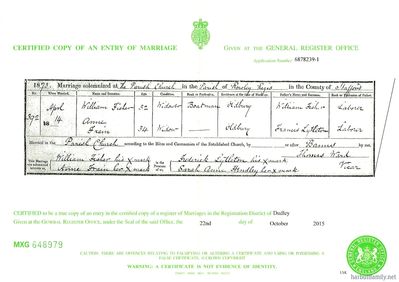 CERTIFIED COPY OF AN ENTRY OF MARRIAGE
GIVEN AT THE GENERAL REGISTER OFFICE
Application Number 6878239-1
1873. Marriage solemnized at the Parish Church in the Parish of Rowley Regis in the County of Stafford
No. When Married. Name and Surname. Age. Condition. Rank or Profession. Residence at the time of Marriage. Father's Name and Surname. Rank or Profession of Father.
392 April 14 William Fisher 52 Widower Boatman Oldbury William Fisher Laborer
Annie Train 34 Widow — Oldbury Francis Lyttleton Laborer
Married in the Parish Church according to the Rites and Ceremonies of the Established Church, by or after Banns by me,
This Marriage was solemnized between us, William Fisher his x mark in the Presence of us, Frederick Lyttleton his x mark Thomas Ward
Annie Train her x mark Sarah Ann Hendley her x mark Vicar
CERTIFIED to be a true copy of an entry in the certified copy of a register of Marriages in the Registration District of Dudley
Given at the GENERAL REGISTER OFFICE, under the Seal of the said Office, the 22nd day of October 2015
MXG 648979
CAUTION: THERE ARE OFFENCES RELATING TO FALSIFYING OR ALTERING A CERTIFICATE AND USING OR POSSESSING A
FALSE CERTIFICATE. ©CROWN COPYRIGHT
WARNING: A CERTIFICATE IS NOT EVIDENCE OF IDENTITY.
GENERAL REGISTER OFFICE
harbottfamily.net